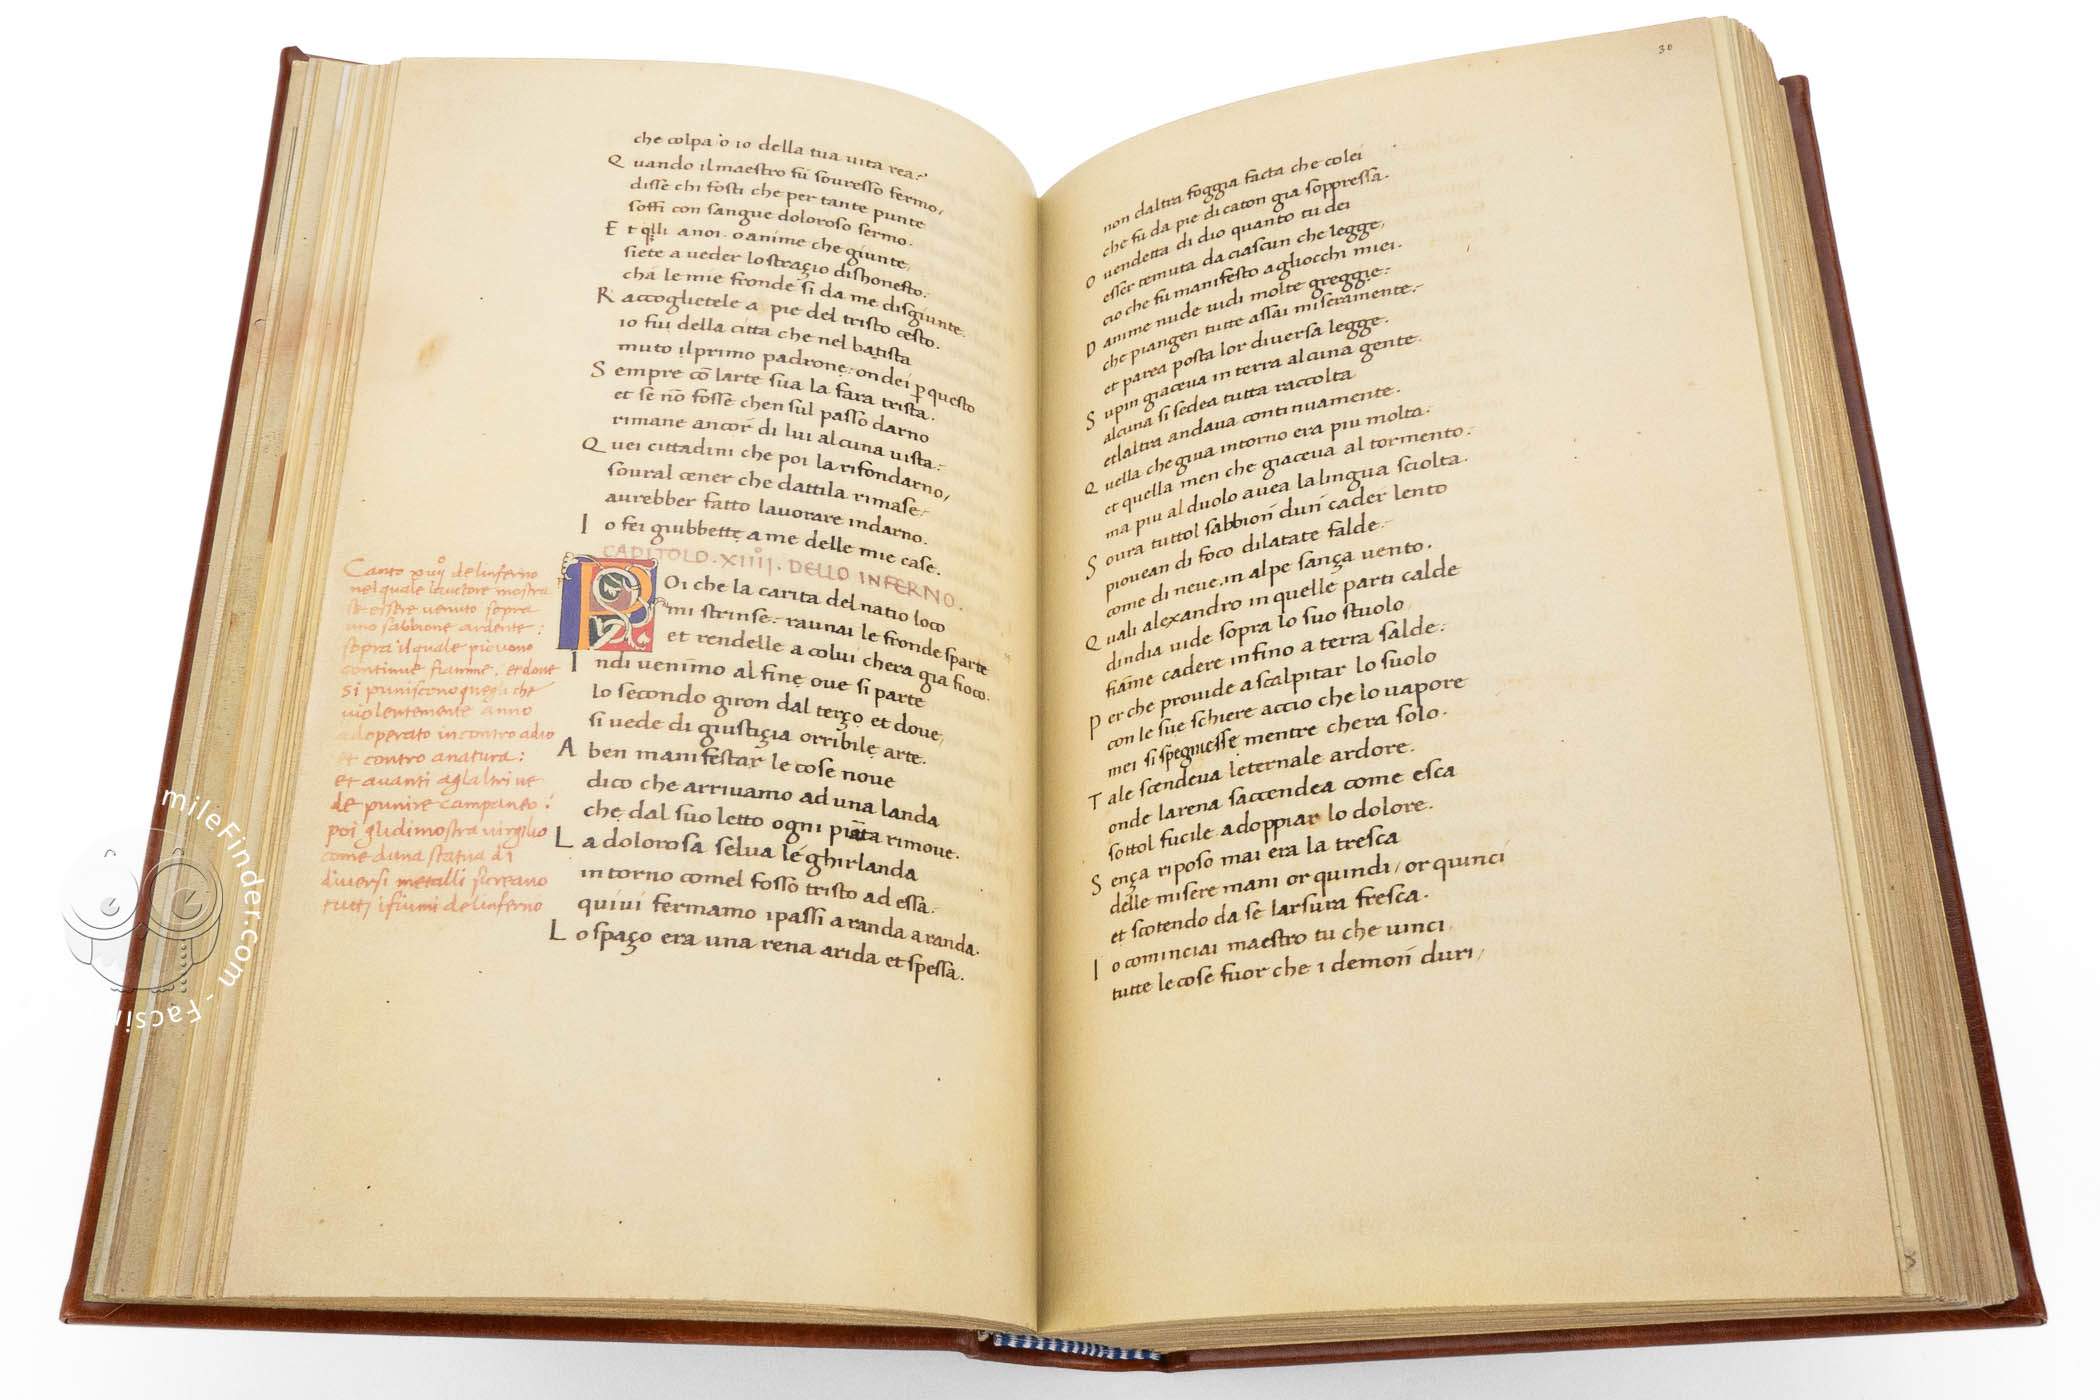 che colpa o io della tua uita rea:
Q uando il maestro fu souresso fermo,
disse chi fosti che per tante punte
soffi con sangue doloroso sermo.
E t qlli anoi. o anime che giunte,
siete a ueder lo straçio dishonesto.
cha le mie fronde si da me disgiunte.
R accoglietele a pie del tristo cesto.
io fui della citta che nel batista
muto il primo padrone: ondei p questo
S empre cō larte sua la fara trista.
et se nō fosse chen sul passo darno
rimane ancor di lui alcuna uista:
Q uei cittadini che poi la rifondarno,
soural cener che dattila rimase:
aurebber fatto lauorare indarno.
I o fei giubbette a me delle mie case.
CAPITOLO . XIIII . DELLO INFERNO .
P Oi che la carita del natio loco
mi strinse: raunai le fronde sparte
et rendelle a colui chera gia fioco.
I ndi uenimo al fine oue si parte
lo secondo giron dal terço et doue,
si uede di giustiçia orribile arte.
A ben manifestar le cose noue
dico che arriuamo ad una landa
che dal suo letto ogni piāta rimoue.
L a dolorosa selua le ghirlanda
intorno comel fosso tristo ad essa:
quiui fermamo i passi a randa a randa.
L o spaço era una rena arida et spessa.
Canto xiiij delinferno
nel quale lauctore mostra
se essere uenuto sopra
uno sabbione ardente:
sopra il quale piouono
continue fiamme. et doue
si puniscono quegli che
uiolentemente anno
adoperato incontro adio
et contro anatura:
et auanti aglaltri ue
de punire campaneo:
poi glidimostra uirgilio
come duna statua di
diuersi metalli si creano
tutti ifiumi delinferno
30
non daltra foggia facta che colei
che fu da pie di caton gia soppressa.
O uendetta di dio quanto tu dei
esser temuta da ciascun che legge,
cio che fu manifesto agliocchi miei.
D anime nude uidi molte greggie:
che piangen tutte assai miseramente:
et parea posta lor diuersa legge.
S upin giaceua in terra alcuna gente.
alcuna si sedea tutta raccolta
et laltra andaua continuamente.
Q uella che giua intorno era piu molta.
et quella men che giaceua al tormento:
ma piu al duolo auea la lingua sciolta.
S oura tuttol sabbion dun cader lento
piouean di foco dilatate falde:
come di neue.in alpe sança uento.
Q uali alexandro in quelle parti calde
dindia uide sopra lo suo stuolo
fiāme cadere infino a terra salde:
P er che prouide a scalpitar lo suolo
con le sue schiere accio che lo uapore
mei si spegnesse mentre chera solo.
T ale scendeua leternale ardore.
onde larena saccendea come esca
sottol fucile a doppiar lo dolore.
S ença riposo mai era la tresca
delle misere mani or quindi, or quinci
et scotendo da se larsura fresca.
I o cominciai maestro tu che uinci
tutte le cose fuor che i demoni duri,
mileFinder.com - Facsim